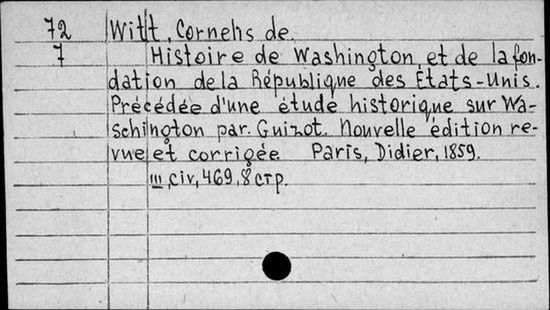 72 Witt, Cornelis de.
7 Histoire de Washington et de la fon-
dation de la République des États-Unis.
Précédée d'une étude historique sur Wa-
schington par Guizot. Nouvelle édition re-
vue et corrigée Paris, Didier, 1859.
III, civ, 469, 8 стр.